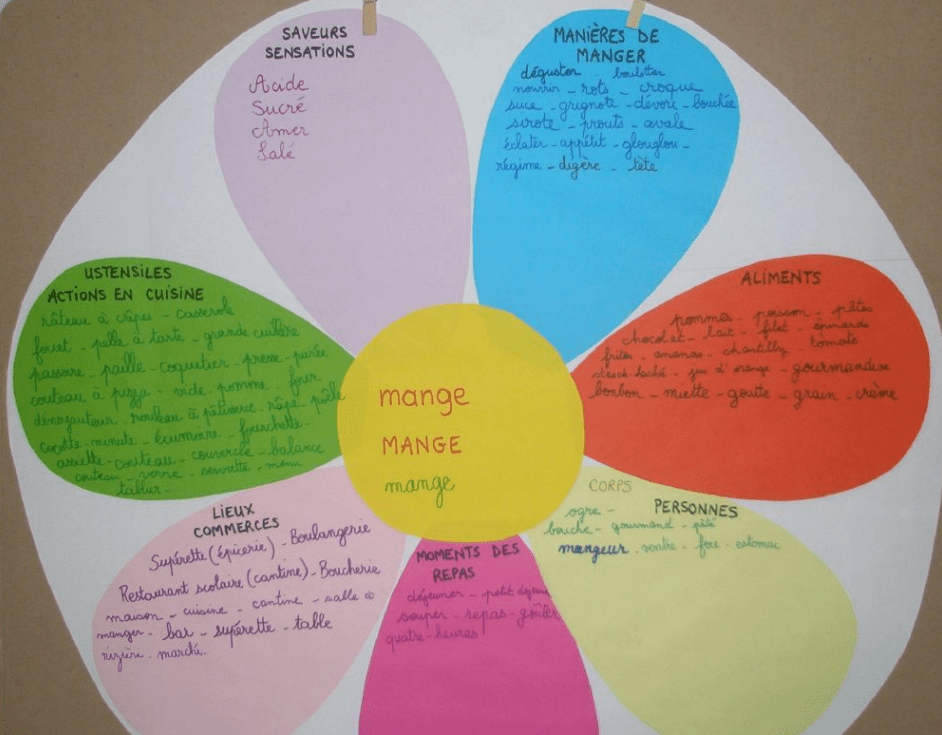 SAVEURS
SENSATIONS
Acide
Sucré
Amer
Salé
MANIÈRES DE
MANGER
déguster - boulotter
nourrir - rots - croque
suce - grignote - dévore - bouchée
sirote - prouts - avale
éclater - appétit - glouglou -
régime - digère - tète
ALIMENTS
pommes - poisson - pâtes
chocolat - lait - filet - épinards
frites - ananas - chantilly - tomate
steack haché - jus d'orange - gourmandise
bonbon - miette - goutte - grain - crème
USTENSILES
ACTIONS EN CUISINE
râteau à crêpes - casserole
fouet - pelle à tarte - grande cuillère
passoire - paille - coquetier - presse-purée
couteau à pizza - vide pomme - four
dénoyauteur - rouleau à pâtisserie - râpe - poêle
cocotte-minute - écumoire - fourchette -
assiette - couteau - couvercle - balance
couteau - verre - serviette - menu
tablier -
mange
MANGE
mange
CORPS PERSONNES
ogre -
bouche - gourmand - pâté
mangeur - ventre - foie - estomac
LIEUX
COMMERCES
Supérette (épicerie) - Boulangerie
Restaurant scolaire (cantine) - Boucherie
maison - cuisine - cantine - salle à
manger - bar - supérette - table
rizière - marché -
MOMENTS DES
REPAS
déjeuner - petit déjeuner
souper - repas - goûter
quatre-heures